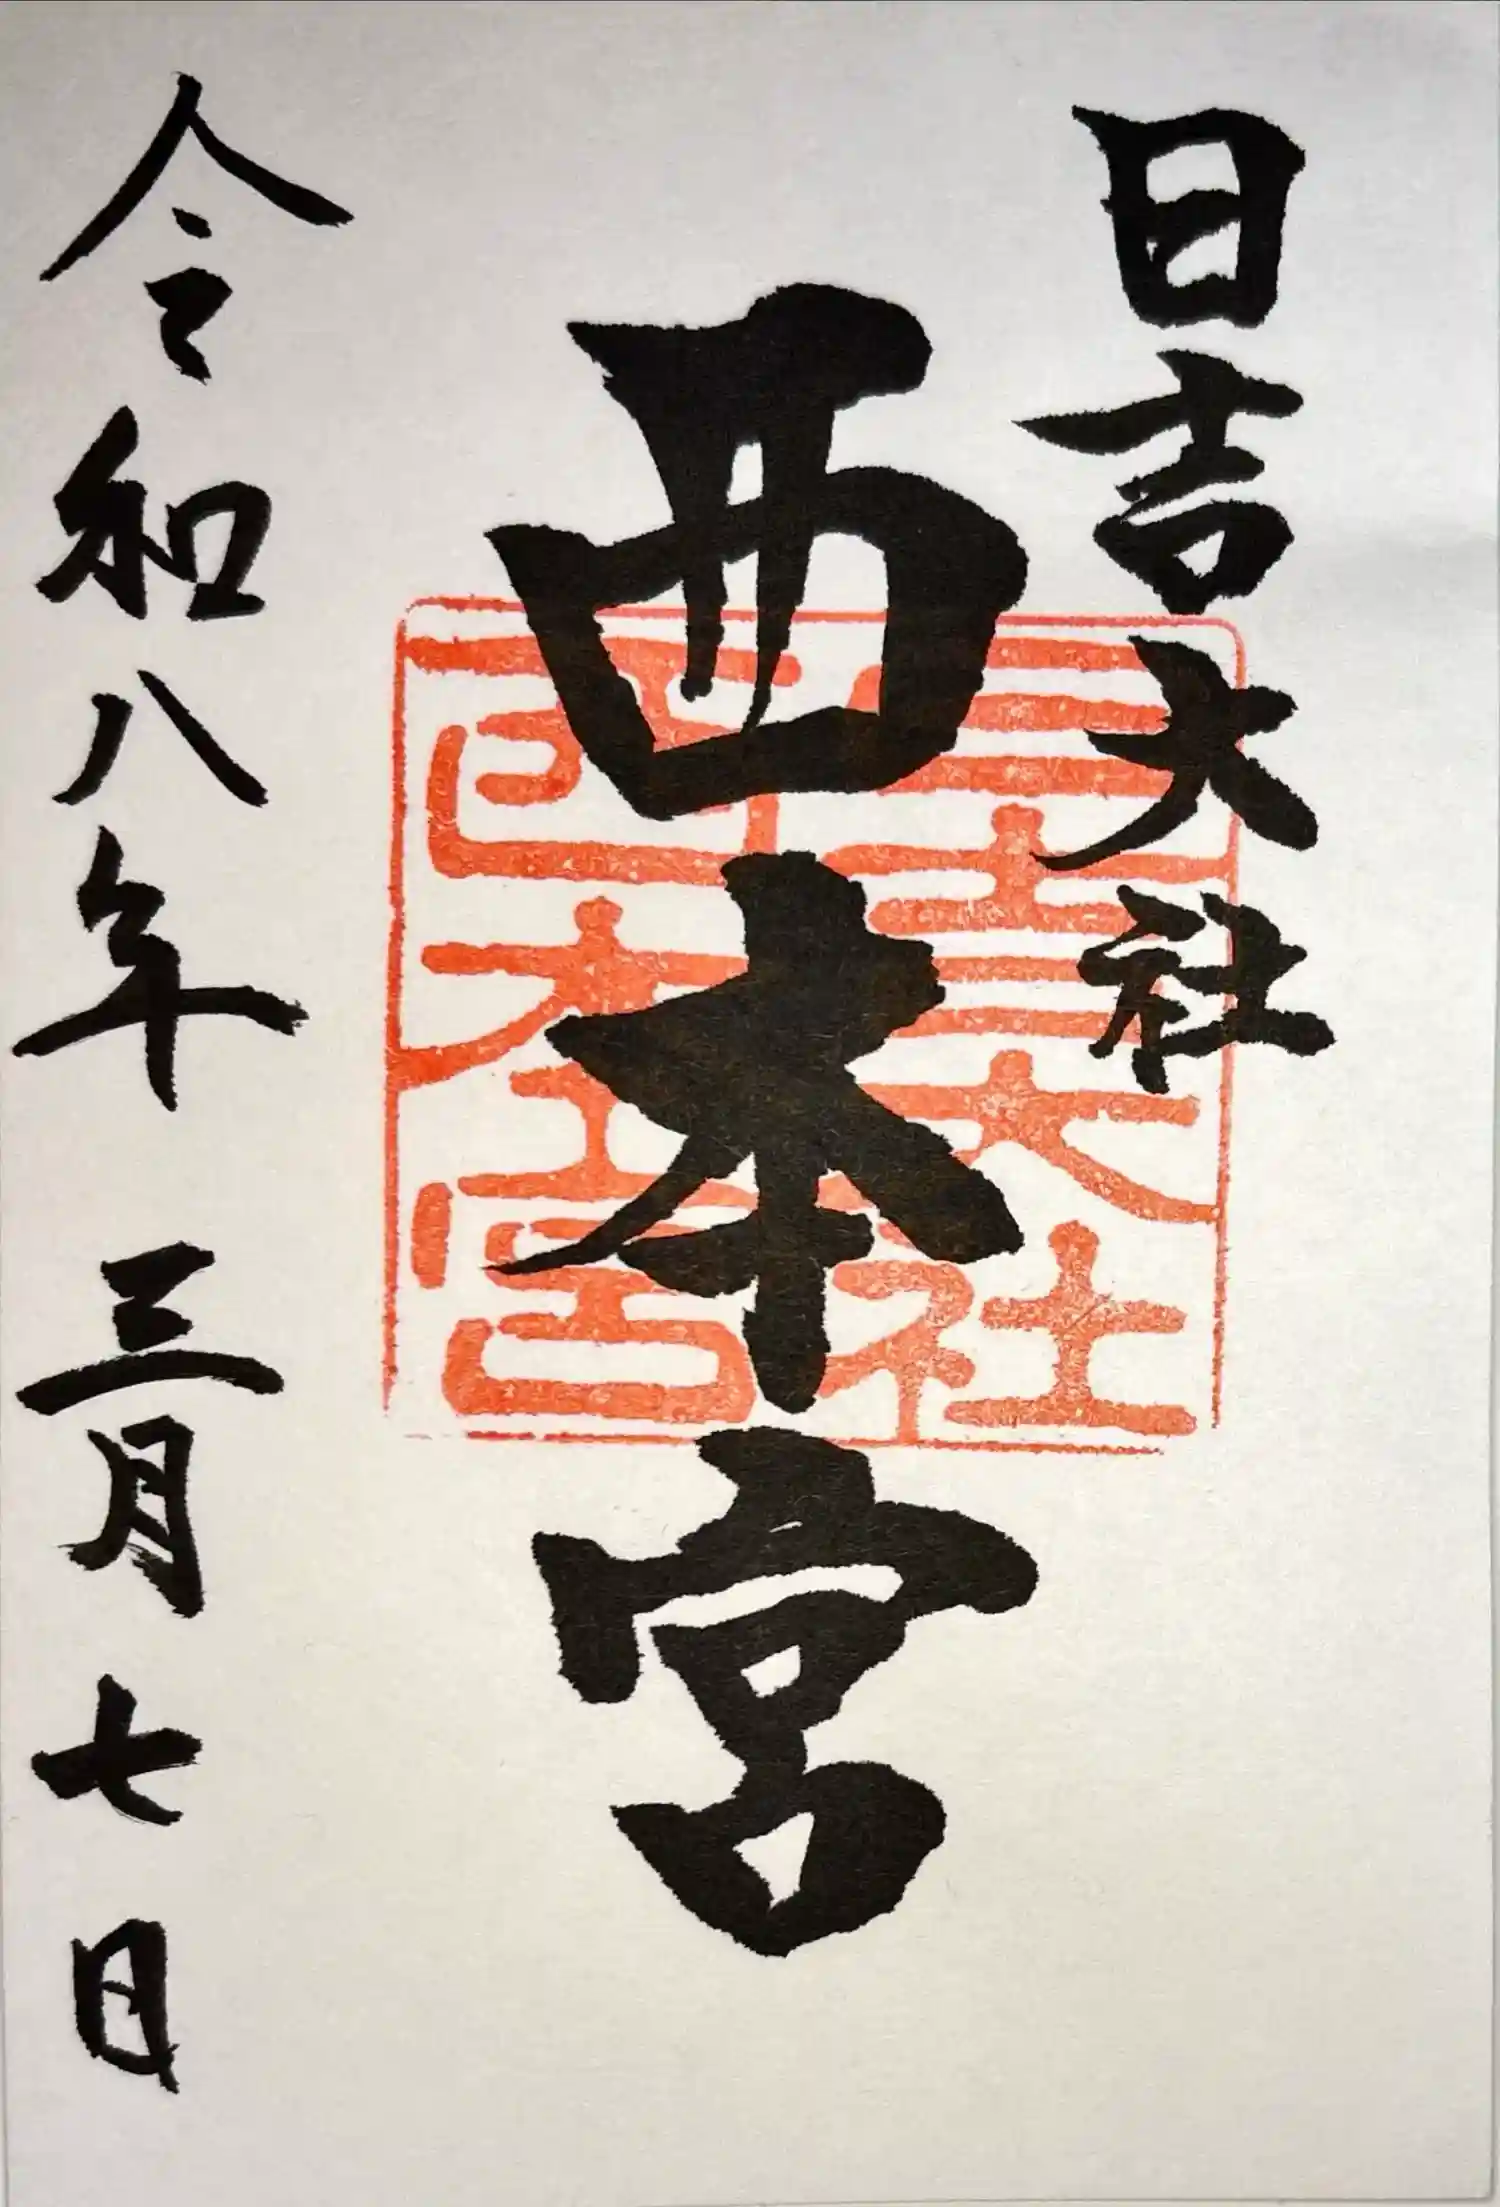 日吉大社
西本宮
日吉大社
西本宮
令和八年 三月七日